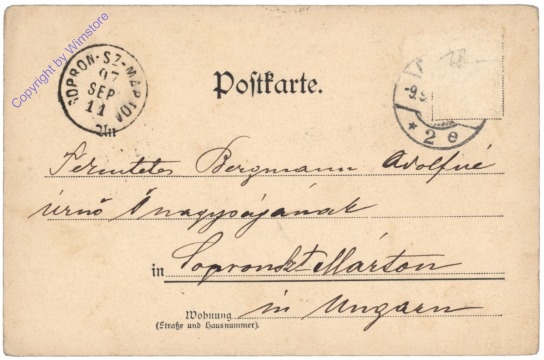 Copyright by Wimstore
SOPRON-SZ-MÁRTON
97
SEP
11
Postkarte.
9.9
* 2 e
An
Bergmann Adolfné
úrnő Őnagyságának
in Sopronszt Márton
in Ungarn
Wohnung
(Straße und Hausnummer).